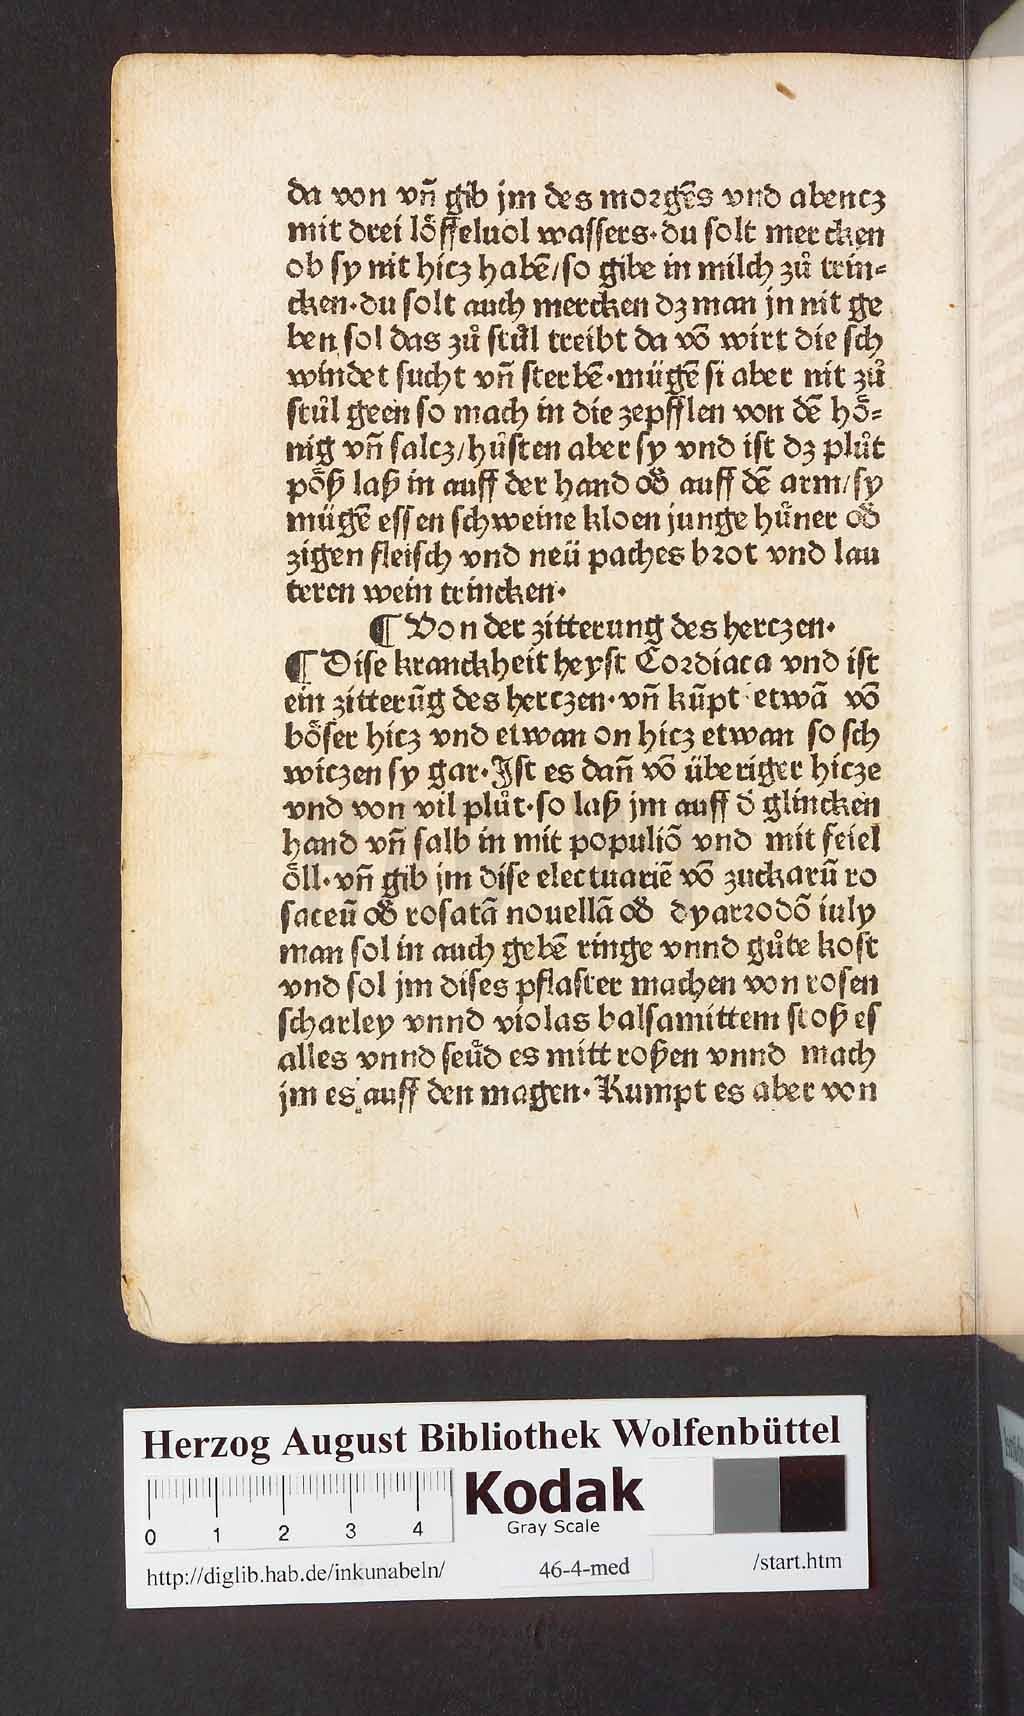 da von vn̄ gib jm des morgēs vnd abencz
mit drei loͤffeluol wassers·du solt mer cken
ob sy nit hicz habē/so gibe in milch zuͦ trin⸗
cken·du solt auch mercken dz man jn nit ge
ben sol das zuͦ stuͦl treibt da vō wirt die sch
windet sucht vn̄ sterbē·mügē si aber nit zuͦ
stuͦl geen so mach in die zepfflen von dē hoͤ⸗
nig vn̄ salcz/huͦsten aber sy vnd ist dz pluͦt
poͤß laß in auff der hand od̕ auff dē arm/sy
mügē essen schweine kloen junge huͤner od̕
zigen fleisch vnd neü paches brot vnd lau
teren wein trincken·
¶ Von der zitterung des herczen·
¶ Dise kranckheit heyst Cordiaca vnd ist
ein zitterūg des herczen·vn̄ kūpt etwā vō
boͤser hicz vnd etwan on hicz etwan so sch
wiczen sy gar·Ist es dan̄ vō überiger hicze
vnd von vil pluͦt·so laß jm auff d̕ glincken
hand vn̄ salb in mit populiō vnd mit feiel
oͤll·vn̄ gib jm dise electuariē vō zuckarū ro
saceū od̕ rosatā nouellā od̕ dyarrodō iuly
man sol in auch gebē ringe vnnd guͦte kost
vnd sol jm dises pflaster machen von rosen
scharley vnnd violas balsamittem stoß es
alles vnnd seuͦd es mitt roßen vnnd mach
jm es auff den magen· Kumpt es aber von
Herzog August Bibliothek Wolfenbüttel
Kodak
Gray Scale
0 1 2 3 4
http://diglib.hab.de/inkunabeln/ 46-4-med /start.htm